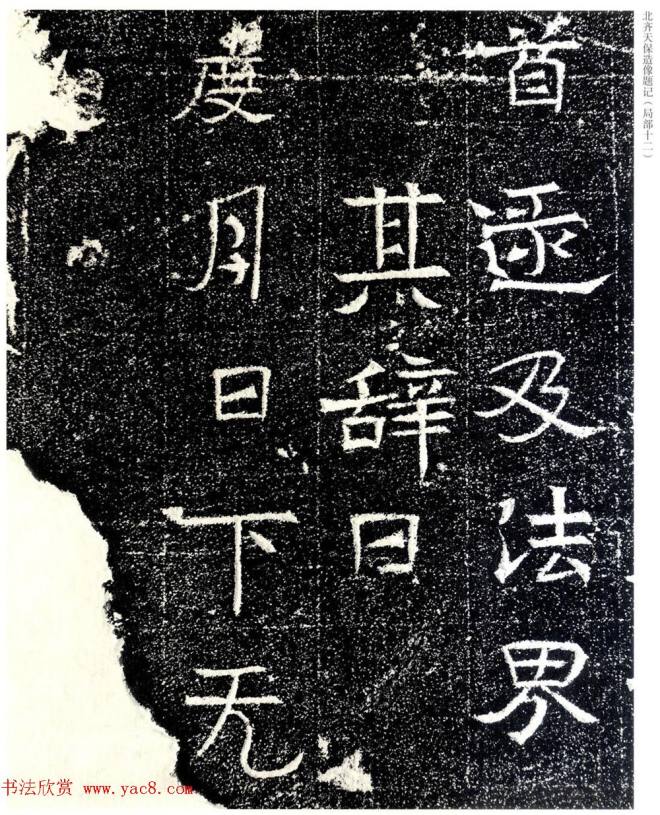 北齐天保造像题记（局部十二）
首逯及法界
其辞曰
度月日下无
书法欣赏 www.yac8.com